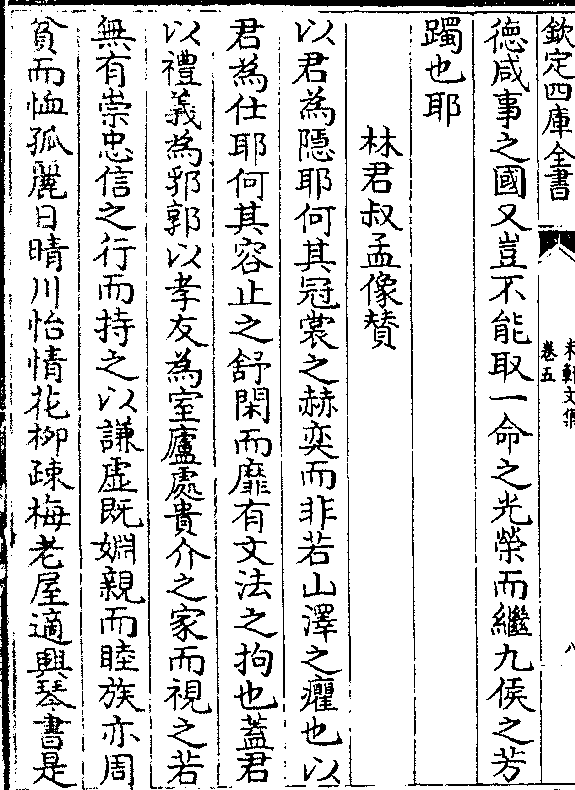 欽定四庫全書
未軒文集
卷五
八
德咸事之國又豈不能取一命之光榮而繼九侯之芳
躅也耶
林君叔孟像贊
以君為隱耶何其冠裳之赫奕而非若山澤之癯也以
君為仕耶何其容止之舒閑而靡有文法之拘也蓋君
以禮義為郛郭以孝友為室廬處貴介之家而視之若
無有崇忠信之行而持之以謙虛既婣親而睦族亦周
貧而恤孤麗日晴川怡情花柳疎梅老屋適興琴書是